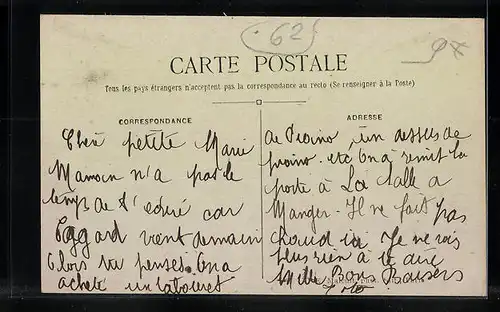 62
CARTE POSTALE
Tous les pays étrangers n'acceptent pas la correspondance au recto (Se renseigner à la Poste)
CORRESPONDANCE
ADRESSE
Chère petite Marie
Maman n'a pas le
temps de t' car
vient demain
Alors tu penses. On a
acheté un tabouret
de Piano un dessus de
piano. etc On a remit la
porte à La Salle a
Manger. Il ne fait pas
chaud ici. Je ne vois
plus rien à te dire
Mille Bons Baisers